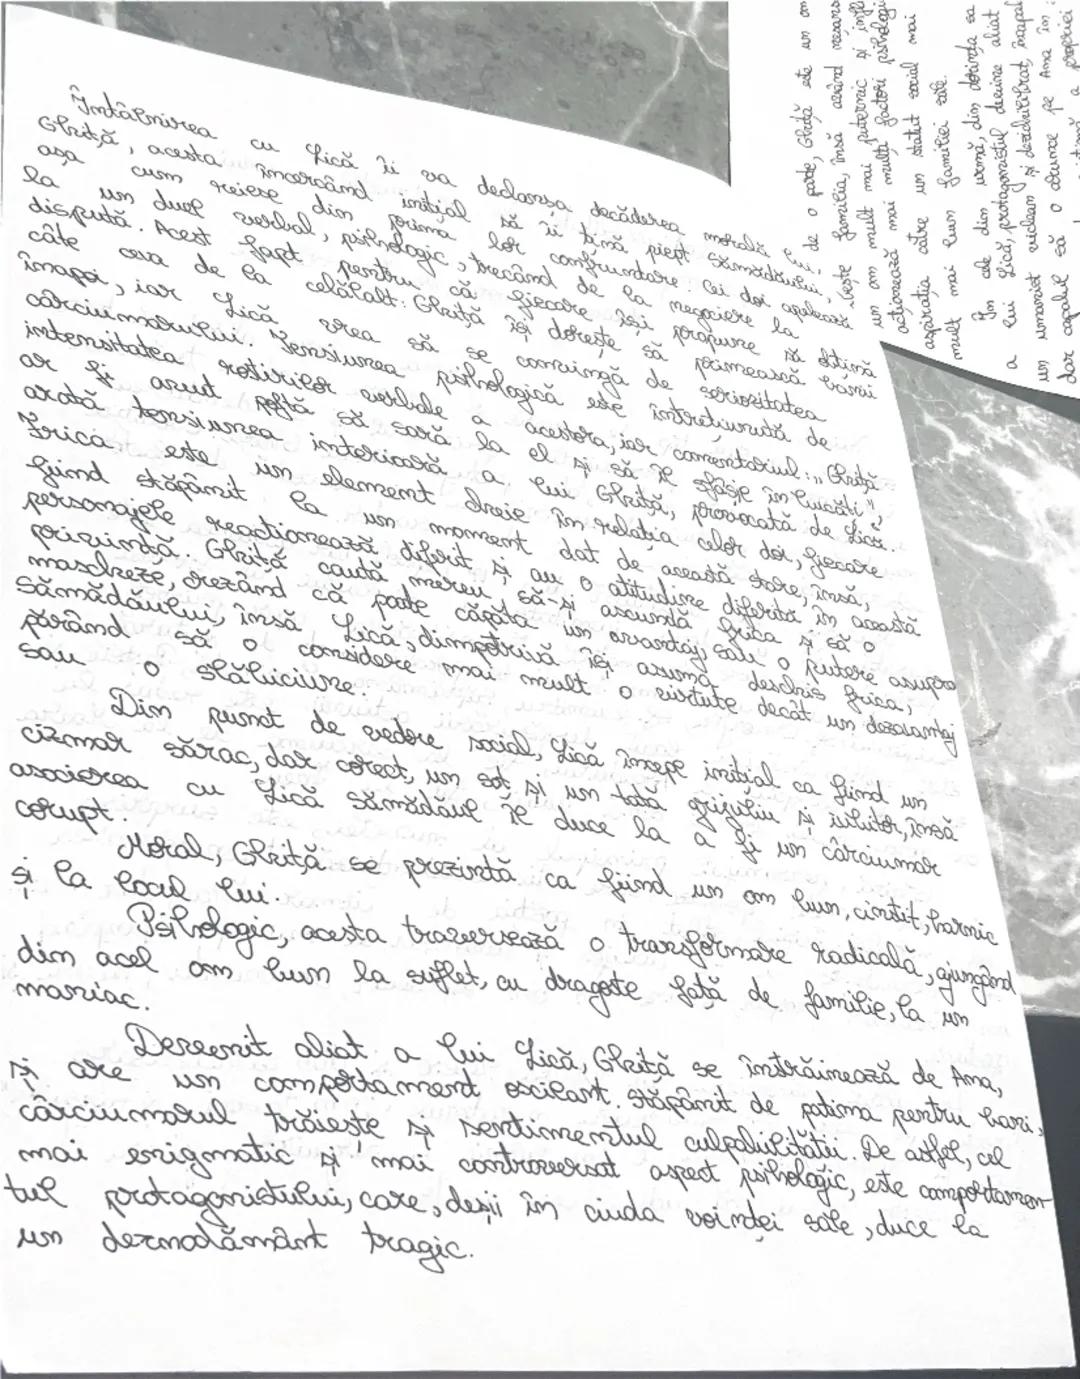 Întâlnirea cu Lică îi va declanșa decăderea morală lui
Ghiță, acesta încercând inițial să îi țină piept Sămădăului,
așa cum reiese din prima lor confruntare. Cei doi apelează
la un duel verbal, psihologic, trecând de la negociere la
dispută. Acest fapt pentru că fiecare își propune să obțină
câte ceva de la celălalt: Ghiță își dorește să primească banii
înapoi, iar Lică vrea să se convingă de seriozitatea
cârciumarului. Tensiunea psihologică este întreținută de
intensitatea rostirilor verbale a acestora, iar comentariul: „Ghiță
ar fi avut poftă să sară la el și să îl sfâșie în bucăți",
arată tensiunea interioară a lui Ghiță, provocată de Lică.
Frica este un element cheie în relația celor doi, fiecare
fiind stăpânit la un moment dat de această stare, însă,
personajele reacționează diferit și au o atitudine diferită în această
privință. Ghiță caută mereu să-și ascundă frica și să o
mascheze, crezând că poate căpăta un avantaj sau o putere asupra
Sămădăului, însă Lică, dimpotrivă își asumă deschis frica,
părând să o considere mai mult o virtute decât un dezavantaj
sau o slăbiciune.
Din punct de vedere social, Lică începe inițial ca fiind un
cizmar sărac, dar corect, un soț și un tată grijuliu și iubitor, însă
asocierea cu Lică Sămădăul îl duce la a fi un cârciumar
corupt.
Moral, Ghiță se prezintă ca fiind un om bun, cinstit, harnic
și la locul lui.
Psihologic, acesta traversează o transformare radicală, ajungând
din acel om bun la suflet, cu dragoste față de familie, la un
maniac.
Devenit aliat a lui Lică, Ghiță se înstrăinează de Ana,
și are un comportament oscilant. Stăpânit de patima pentru bani,
cârciumarul trăiește și sentimentul culpabilității. De astfel, cel
mai enigmatic și mai controversat aspect psihologic, este comportamen
tul protagonistului, care, deșii în ciuda voinței sale, duce la
un deznodământ tragic.
de o parte, Ghiță este un om
familia, însă având
un om mult mai puternic și
acționează mai mulți factori
aspirația către un statut social mai
mult mai bun familiei sale.
În cele din urmă, din dorința sa
a lui Lică, protagonistul devine aliat
un umanist viclean și dezechilibrat,
dar capabil să o arunce pe Ana în